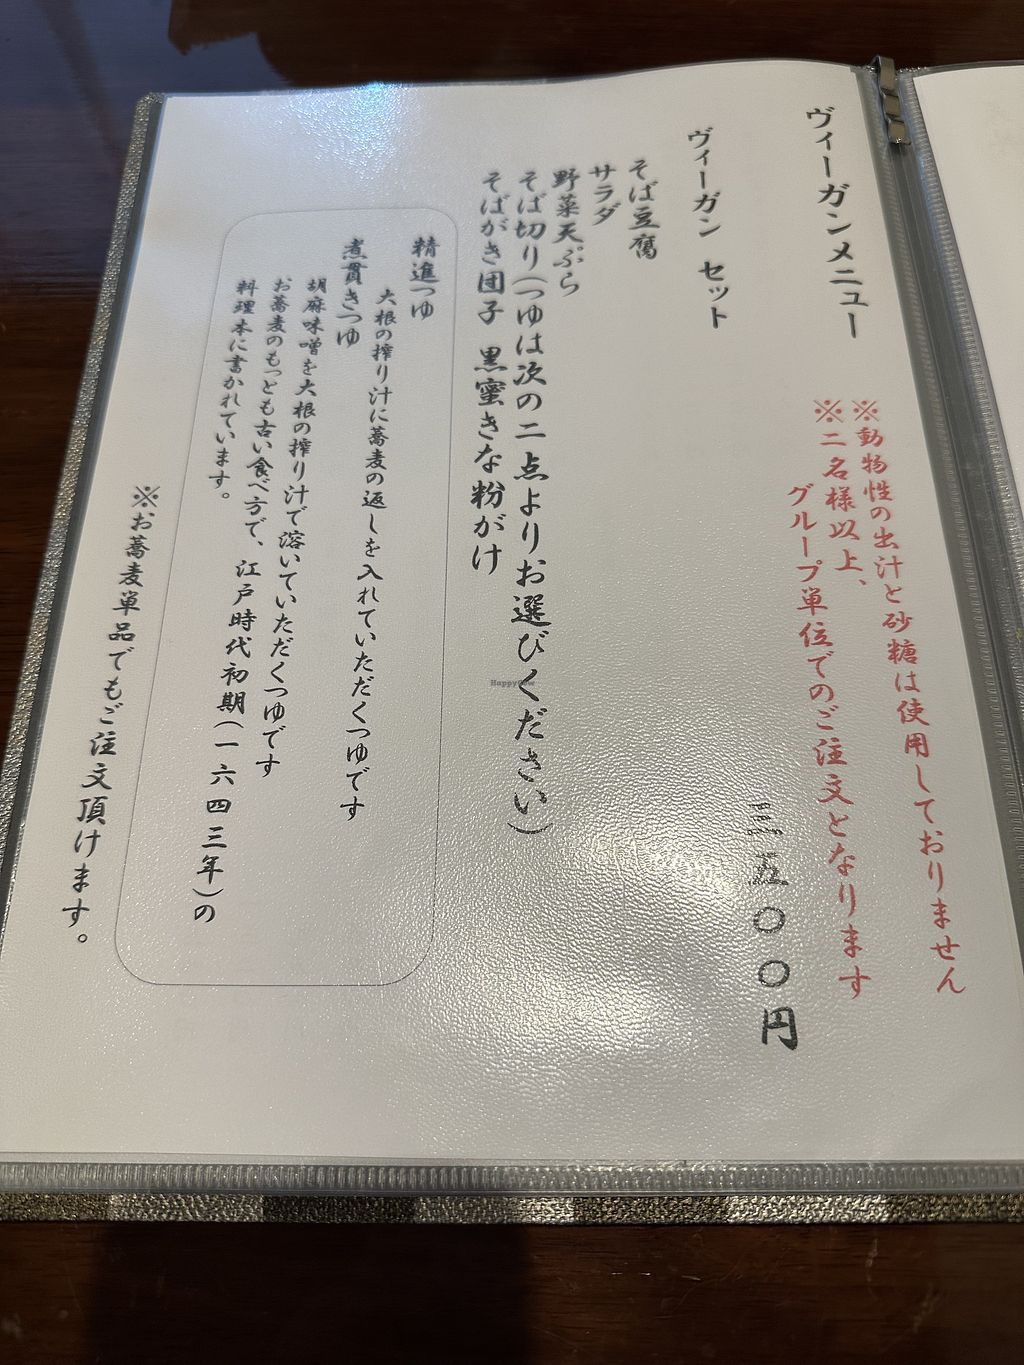 ヴィーガンメニュー
※動物性の出汁と砂糖は使用しておりません
※二名様以上、
グループ単位でのご注文となります
ヴィーガン セット
三五〇〇円
そば豆腐
サラダ
野菜天ぷら
そば切り(つゆは次の二点よりお選びください)
そばがき団子 黒蜜きな粉がけ
精進つゆ
大根の搾り汁に蕎麦の返しを入れていただくつゆです
煮貫きつゆ
胡麻味噌を大根の搾り汁で溶いていただくつゆです
お蕎麦のもっとも古い食べ方で、江戸時代初期(一六四三年)の
料理本に書かれています。
※お蕎麦単品でもご注文頂けます。
HappyCow